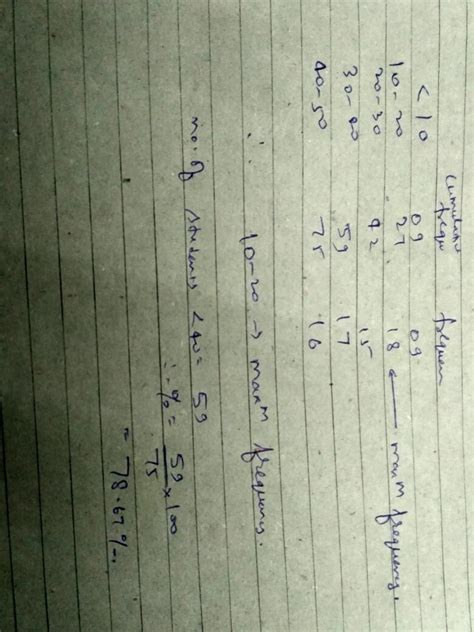 Cumulative frequ frequen
< 10 09 09
10-20 27 18 ← maxm frequency.
20-30 42 15
30-40 59 17
40-50 75 16
∴ 10-20 → maxm frequency.
no. of students < 40 = 59
∴ % = 59/75 × 100
= 78.67%.